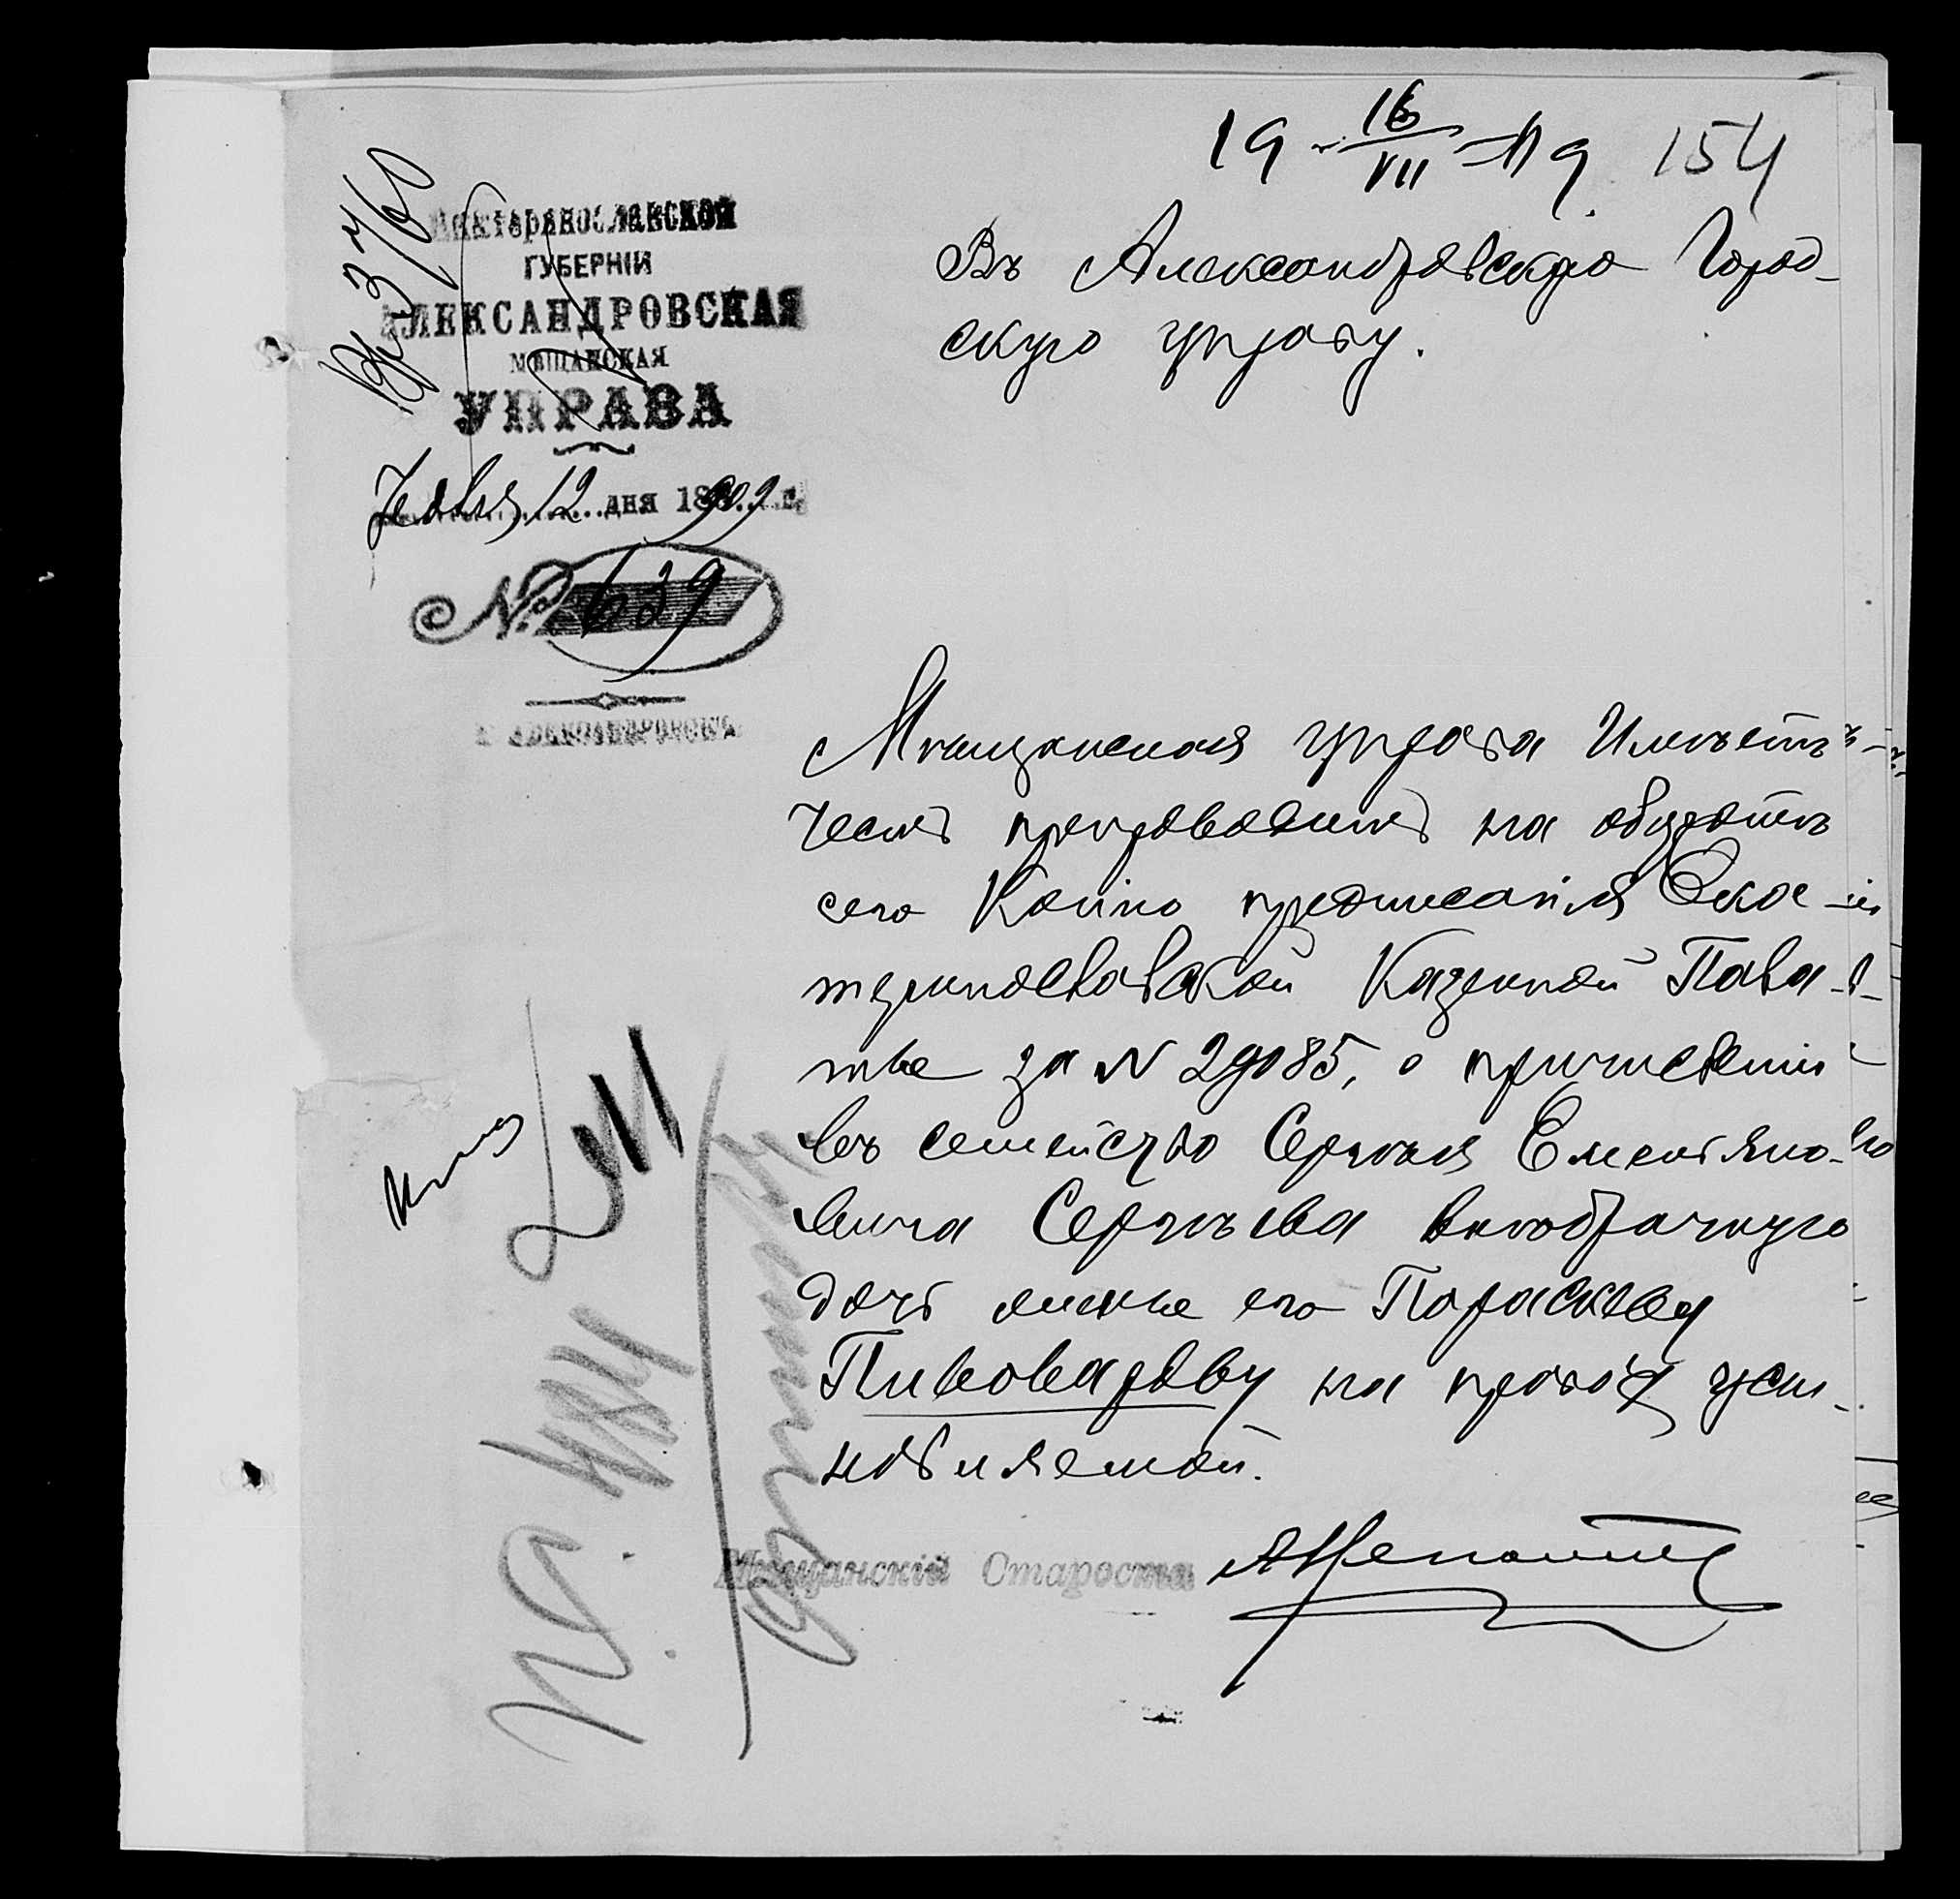 19 16/VII 09 154
Вх. 3760
Екатеринославской
ГУБЕРНІИ
АЛЕКСАНДРОВСКАЯ
МѢЩАНСКАЯ
УПРАВА
Іюля 12 дня 1909 г.
№ 639
г. АЛЕКСАНДРОВСКЪ
Въ Александровскую Город-
скую управу.
Мѣщанская управа Имѣетъ
честь препроводить на оборотѣ
сего Копію предписанія Ека-
теринославской Казенной Пала-
ты за № 29085, о причисленіи
въ семейство Сергѣя Емельяно-
вича Сергѣева внебрачную
дочь жены его Параскеву
Пивоварову на правахъ усы-
новляемой.
Мѣщанскій Староста